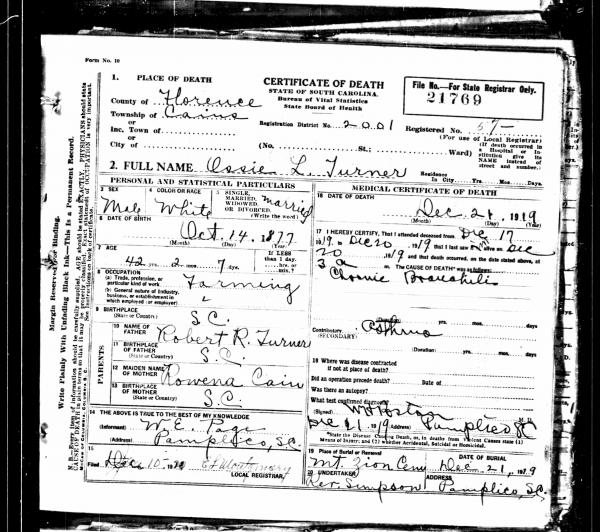 Form No. 10
1. PLACE OF DEATH
County of Florence
Township of Cains
or
Inc. Town of
or
City of (No. St.; Ward)
CERTIFICATE OF DEATH
STATE OF SOUTH CAROLINA.
Bureau of Vital Statistics
State Board of Health
File No.—For State Registrar Only.
21769
Registration District No. 2001 Registered No. 57
(For use of Local Registrar)
(If death occurred in a Hospital or Institution give its NAME instead of street and number.)
2. FULL NAME Ossie L. Turner
Residence
In City Yrs. Mos. Days.
PERSONAL AND STATISTICAL PARTICULARS
3 SEX
Male
4 COLOR OR RACE
White
5 SINGLE, MARRIED, WIDOWED OR DIVORCED
(Write the word)
Married
6 DATE OF BIRTH
Oct. 14. 1877
(Month) (Day) (Year)
7 AGE
42 yrs. 2 mos. 7 days
If LESS than 1 day.
hrs. or min.
8 OCCUPATION
(a) Trade, profession, or particular kind of work
(b) General nature of industry, business, or establishment in which employed (or employer)
Farming
9 BIRTHPLACE
(State or Country)
S.C.
PARENTS
10 NAME OF FATHER
Robert R. Turner
11 BIRTHPLACE OF FATHER
(State or Country)
S.C.
12 MAIDEN NAME OF MOTHER
Rowena Cain
13 BIRTHPLACE OF MOTHER
(State or Country)
S.C.
14 THE ABOVE IS TRUE TO THE BEST OF MY KNOWLEDGE
(Informant) W. E. Page
(Address) Pamplico, S.C.
15
Filed
LOCAL REGISTRAR.
MEDICAL CERTIFICATE OF DEATH
16 DATE OF DEATH
Dec 21, 1919
(Month) (Day) (Year)
17 I HEREBY CERTIFY, That I attended deceased from Dec 17
1919, to Dec 20 1919 that I last saw him Dec
20 1919 and that death occurred, on the date stated above, at
3 a m. The CAUSE OF DEATH was as follows:
Chronic
(Duration) yrs. mos. days
Contributory Asthma
(SECONDARY)
(Duration) yrs. mos. days
18 Where was disease contracted
if not at place of death?
Did an operation precede death? Date of
Was there an autopsy?
What test confirmed diagnosis?
(Signed) M. D.
Dec 21 1919 (Address) Pamplico SC
State the Disease Causing Death, or, in deaths from Violent Causes state (1) Means of Injury; and (2) whether Accidental, Suicidal or Homicidal.
19 Place of Burial or Removal
Mt. Zion Cem
DATE OF BURIAL
Dec. 21, 1919
20 UNDERTAKER
Rev. Simpson
ADDRESS
Pamplico, S.C.
Margin Reserved for Binding.
Write Plainly With Unfading Black Ink—This is a Permanent Record.
N. B.—Every item of information should be carefully supplied. AGE should be stated EXACTLY. PHYSICIANS should state CAUSE OF DEATH in plain terms so that it may be properly classified. Exact statement of OCCUPATION is very important. See instructions on back of certificate.